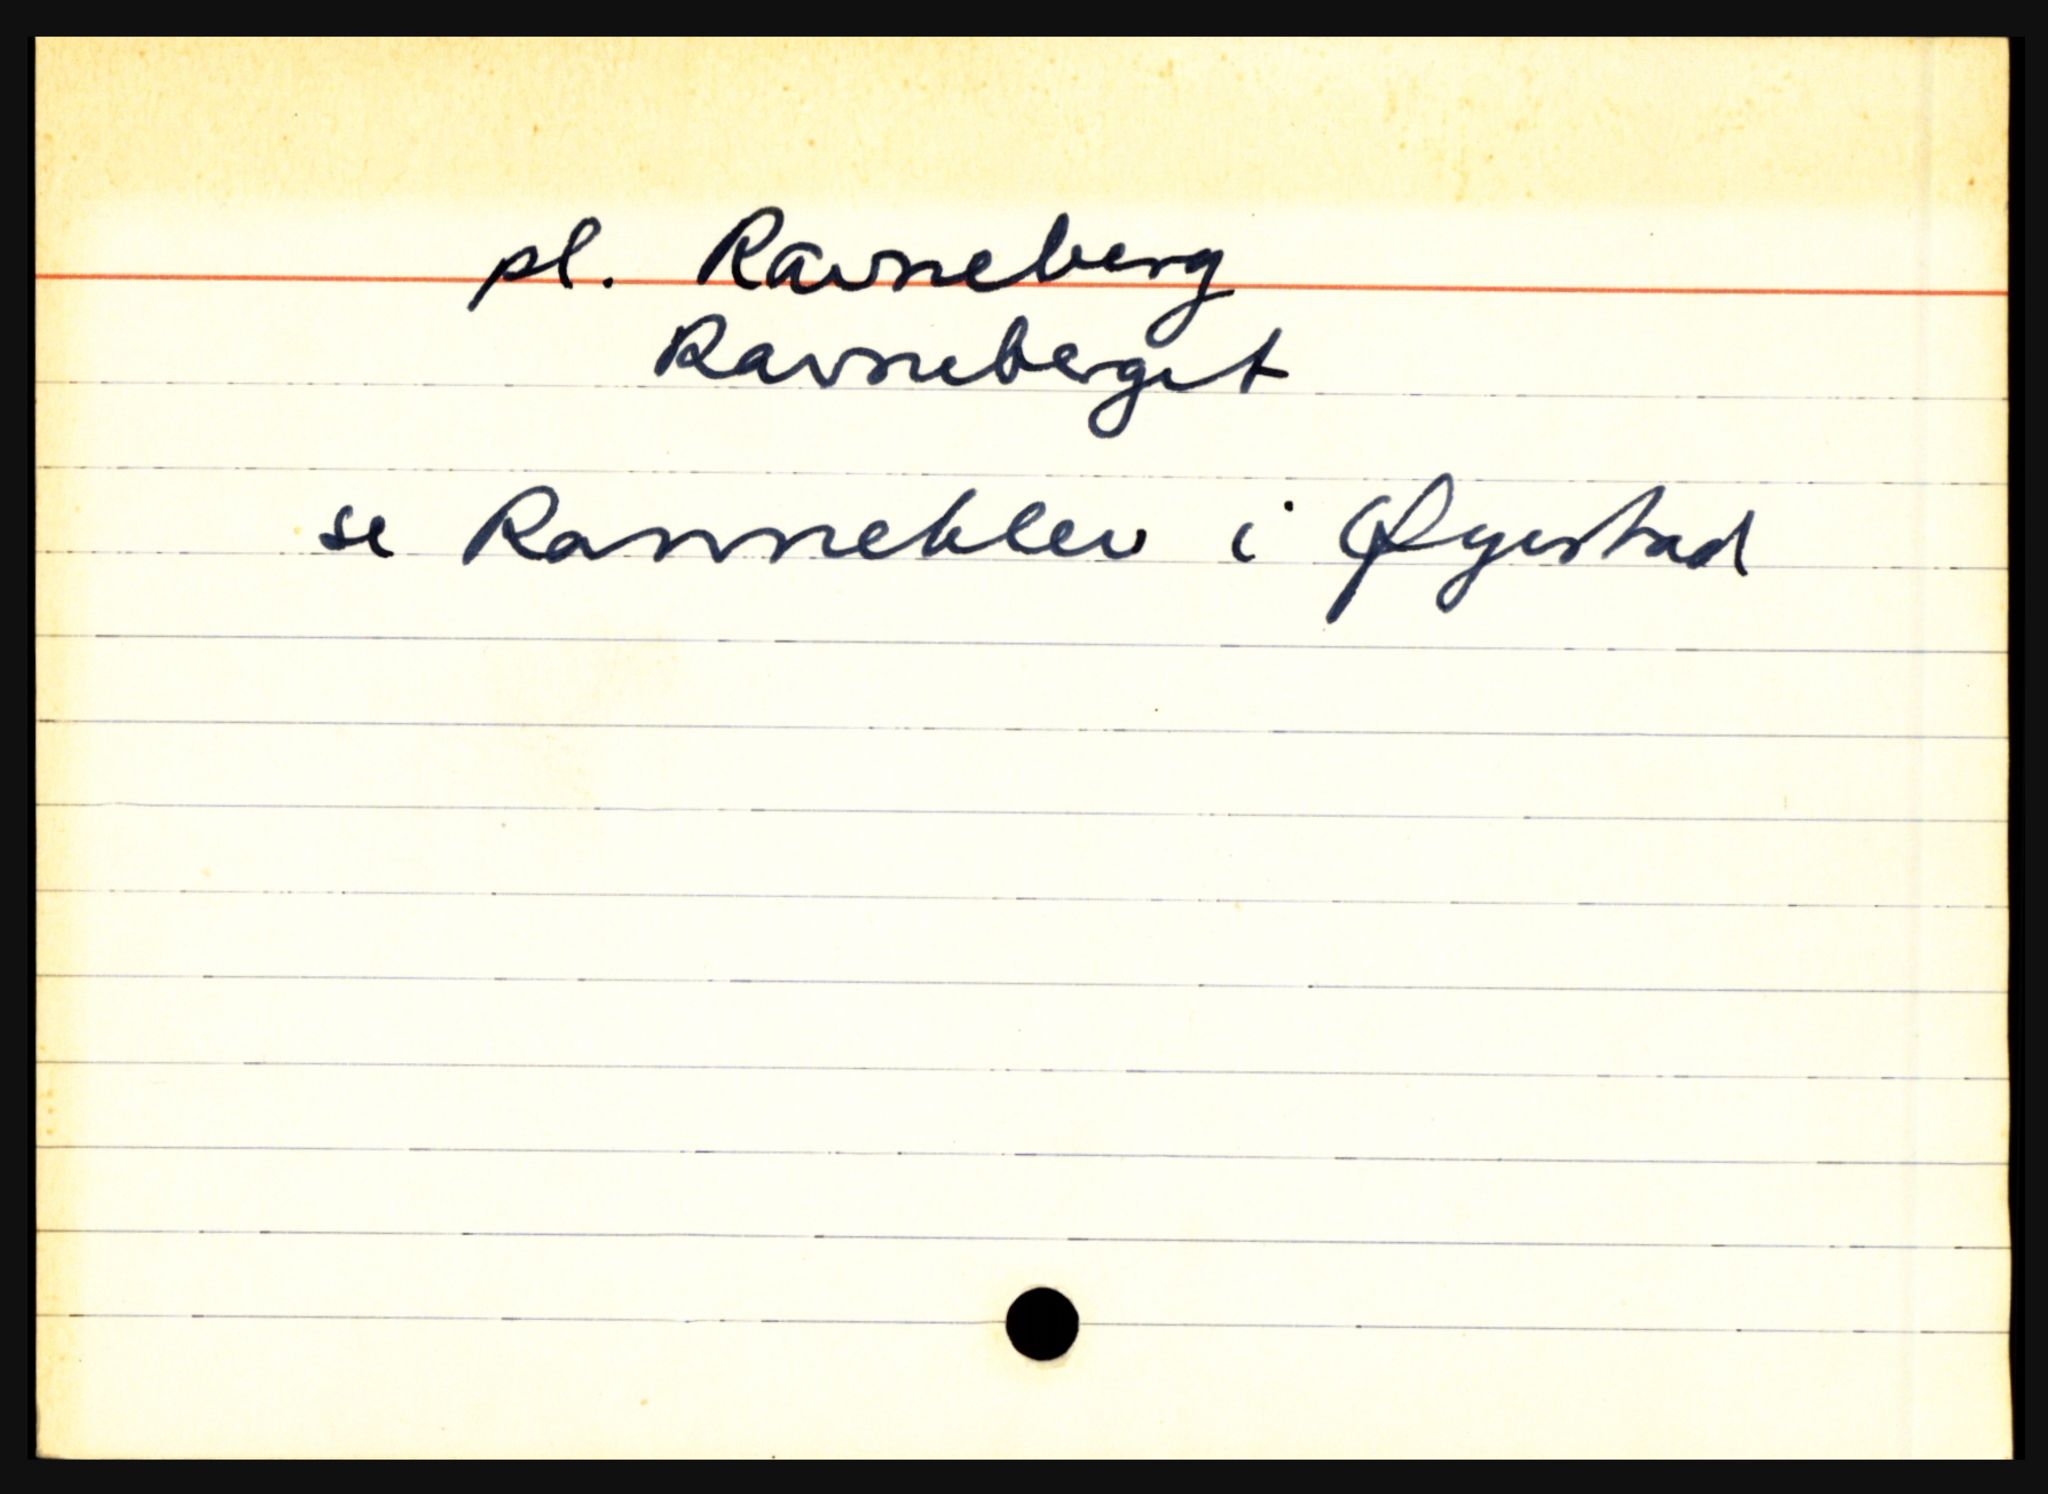 pl. Ravneberg
Ravneberget
se Ranneklev i Øyestad